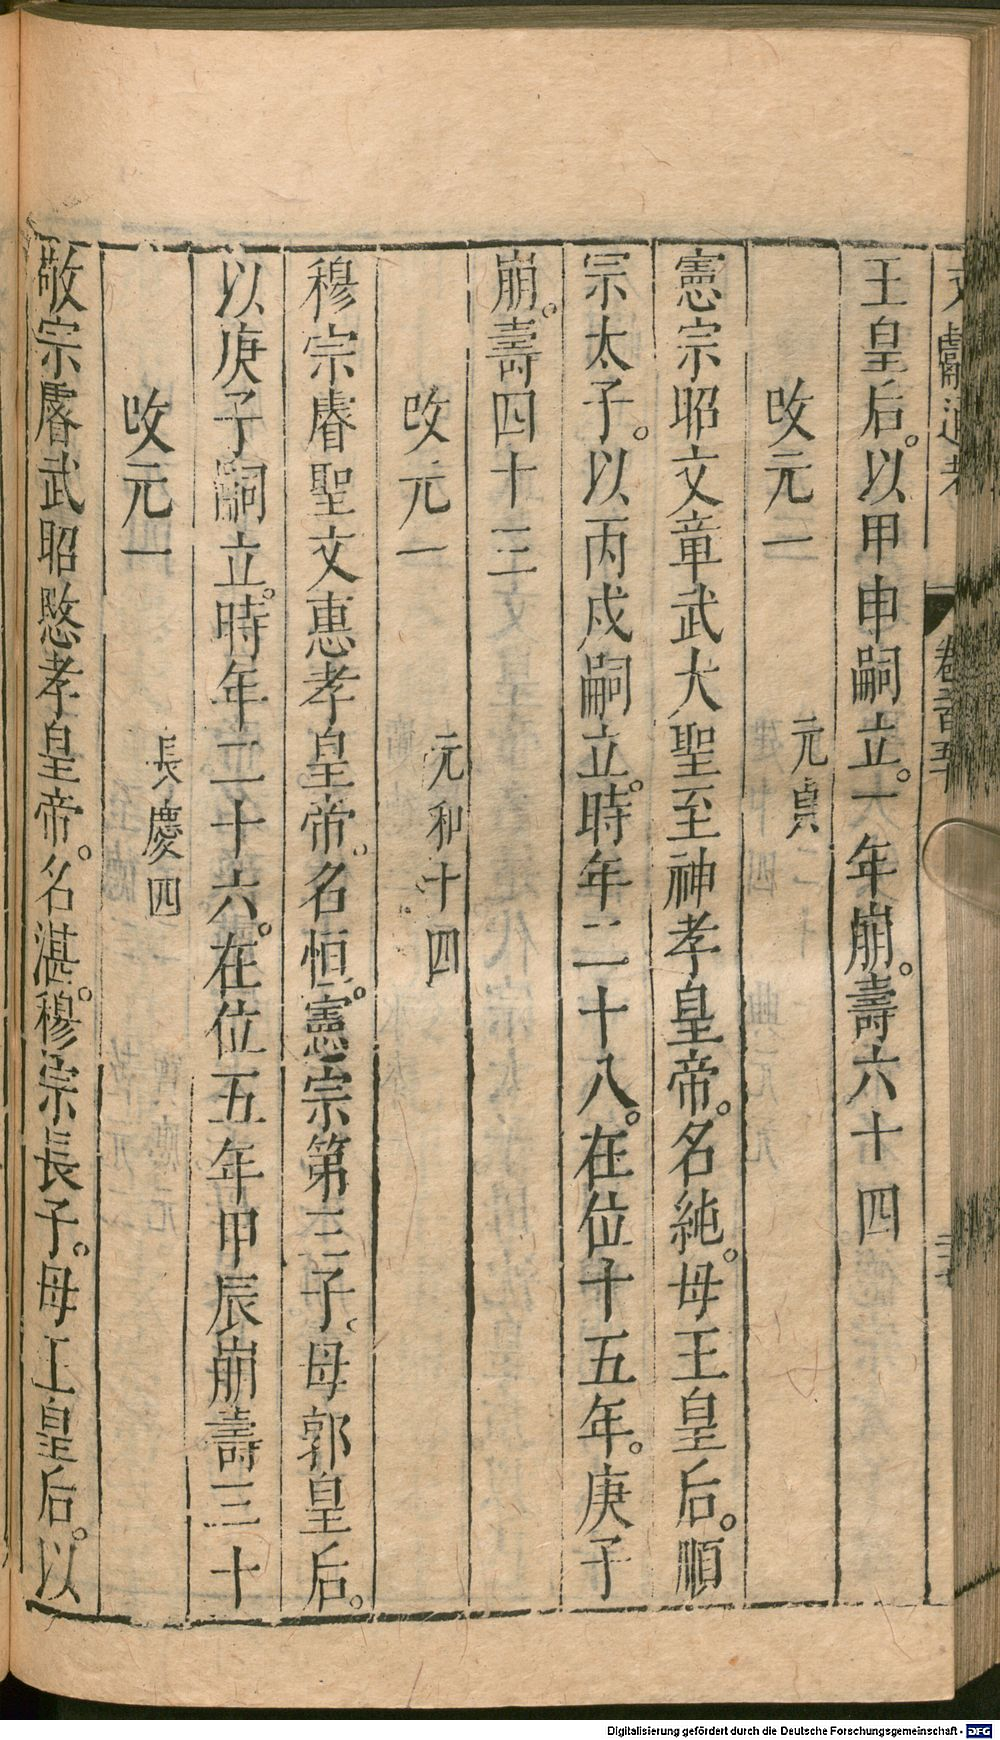 文獻通考 卷二百五十
王皇后。以甲申嗣立。一年崩。壽六十四
改元一
元貞
憲宗昭文章武大聖至神孝皇帝。名純。母王皇后。順
宗太子。以丙戌嗣立。時年二十八。在位十五年。庚子
崩。壽四十三
改元一
元和十四
穆宗睿聖文惠孝皇帝。名恒。憲宗第三子。母郭皇后。
以庚子嗣立。時年二十六。在位五年甲辰崩壽三十
改元一
長慶四
敬宗睿武昭愍孝皇帝。名湛。穆宗長子。母王皇后。以
Digitalisierung gefördert durch die Deutsche Forschungsgemeinschaft - DFG